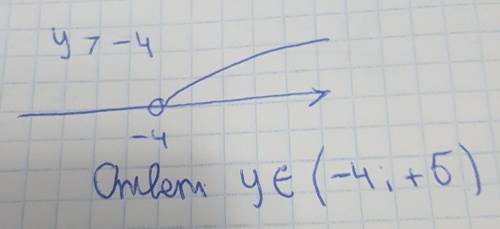 y > -4
-4
Ответ: y ∈ (-4; +5)